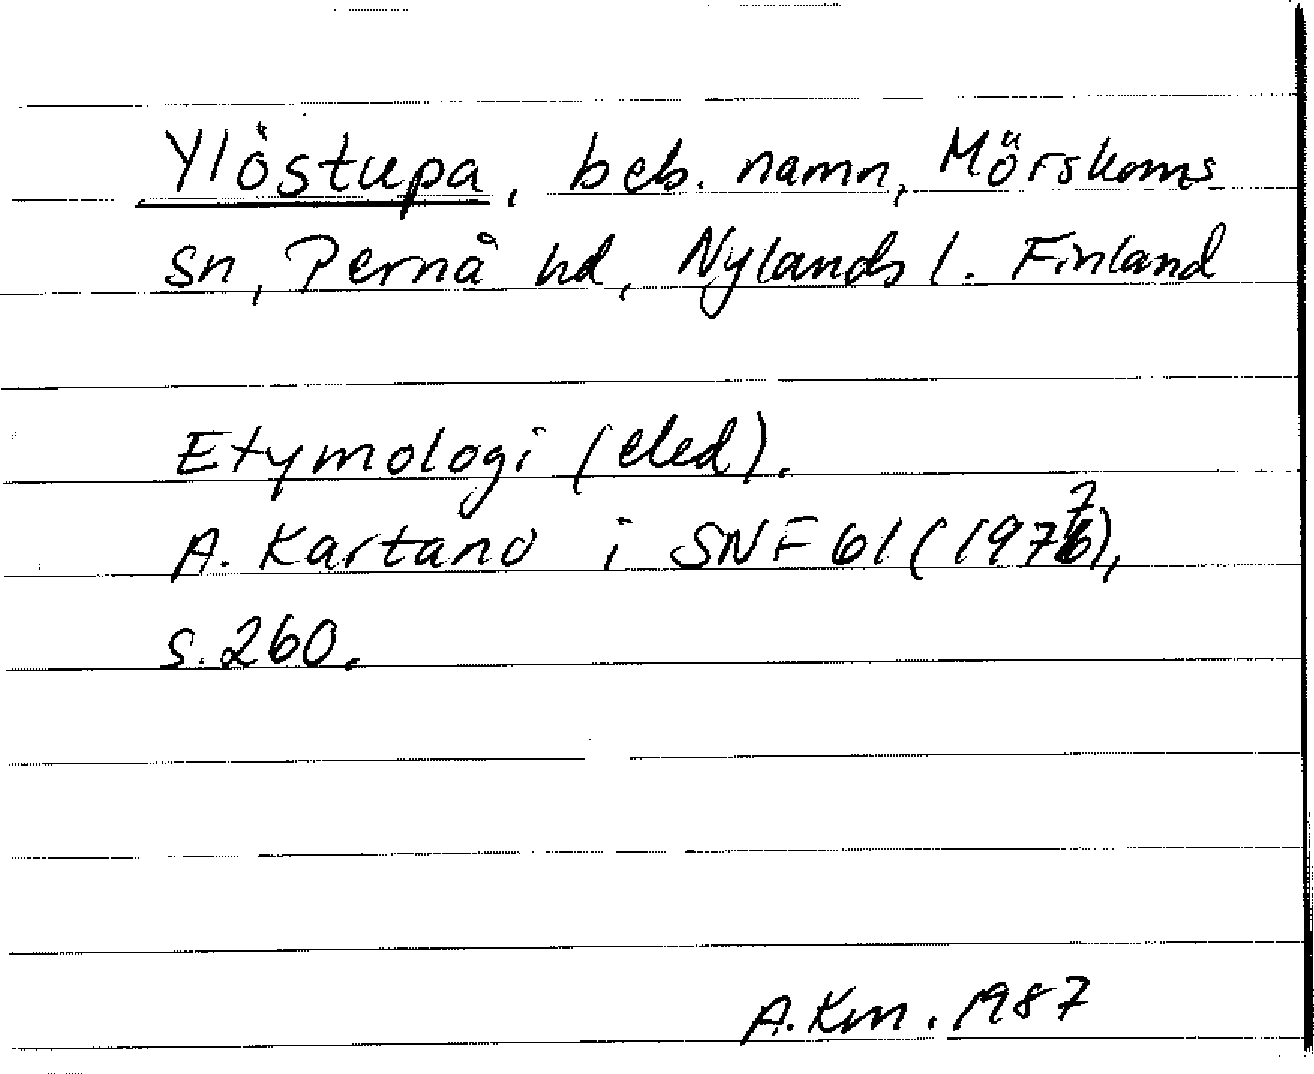 Ylöstupa, beb. namn, Mörskoms
sn, Pernå hd, Nylands l. Finland
Etymologi (eled).
A. Kartano i SNF 61 (1977),
s. 260.
A. Km. 1987